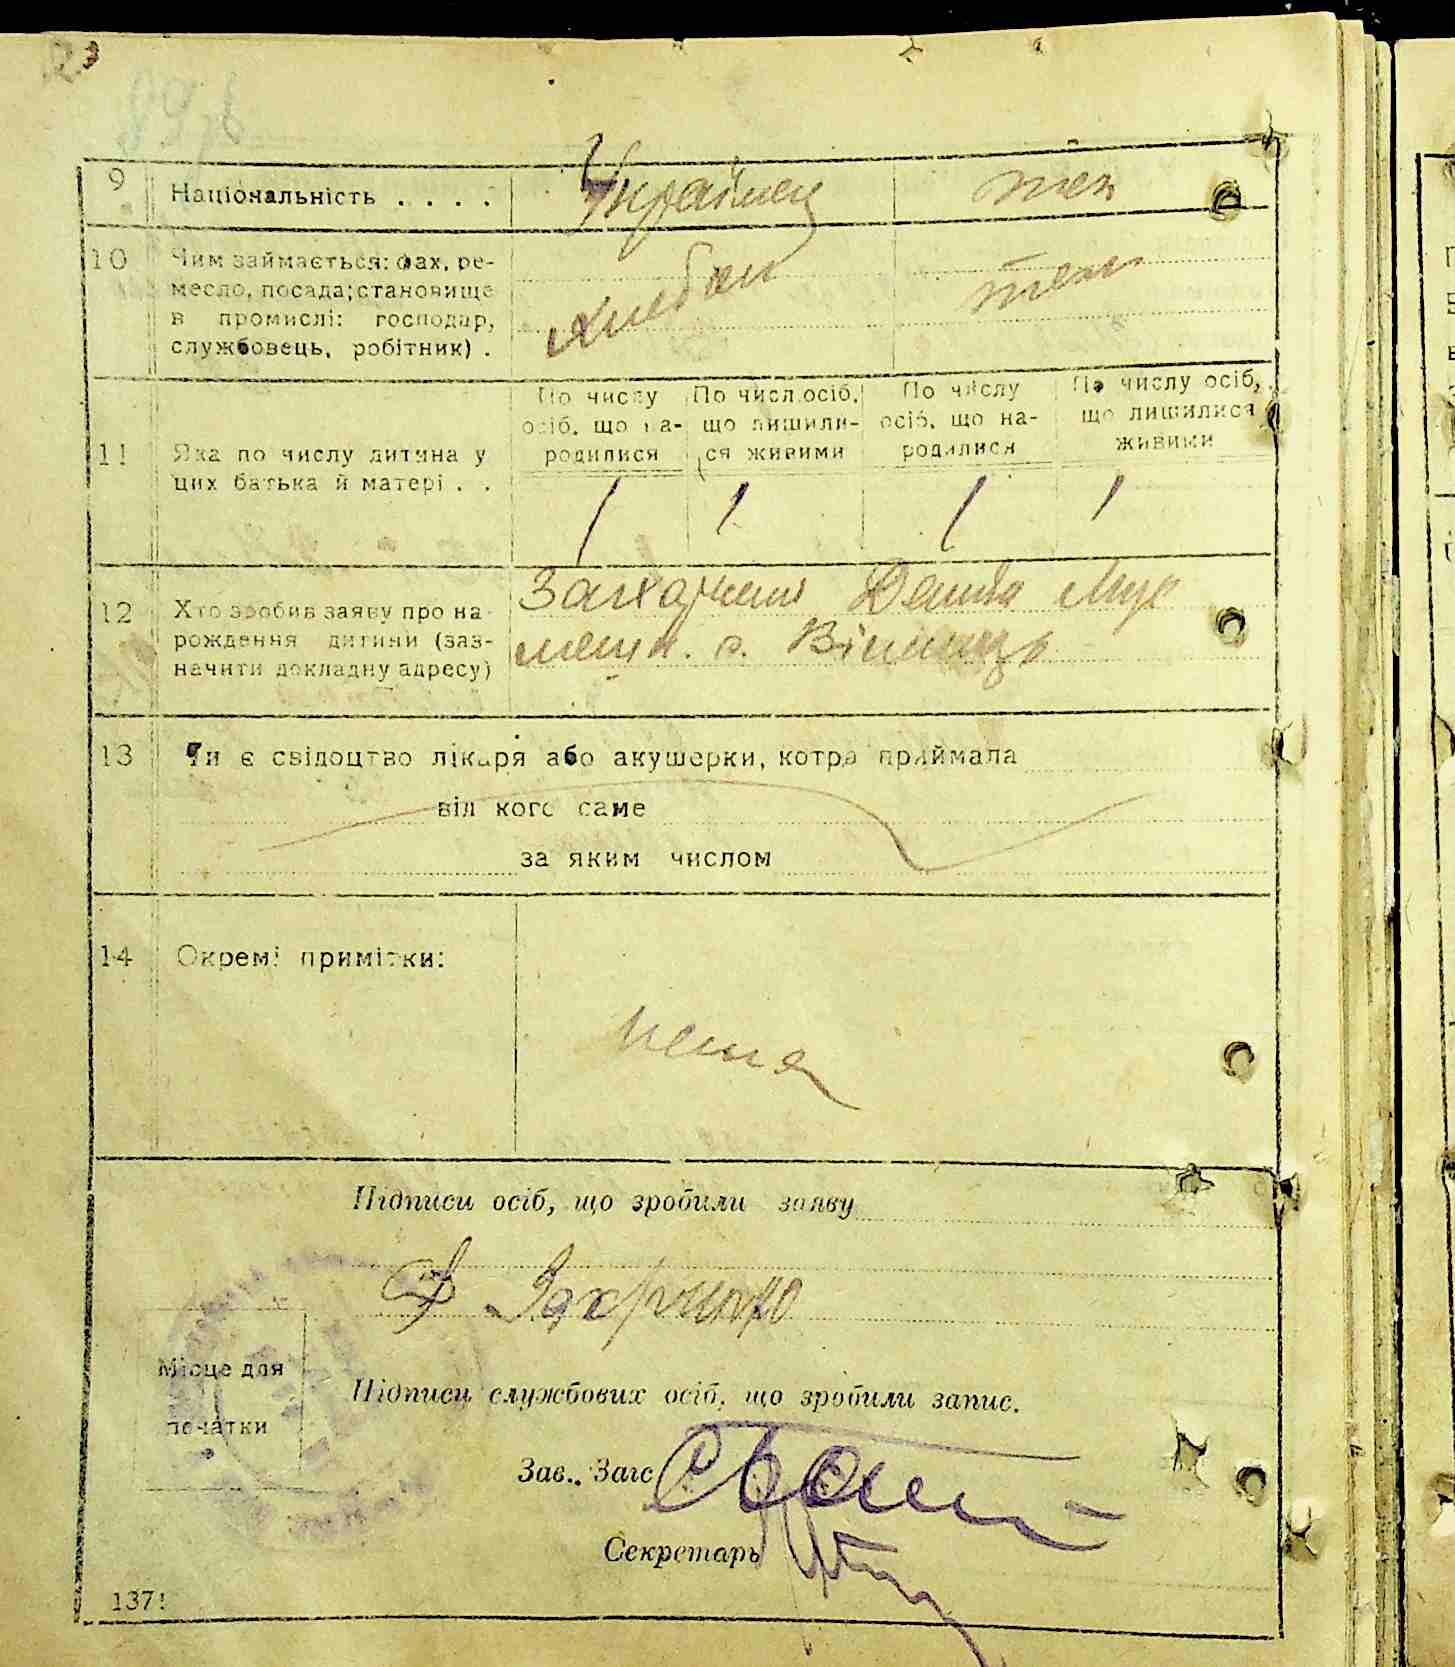 9 Національність . . . . Українец теж
10 Чим займається: фах, ре-
месло, посада; становище
в промислі: господар,
службовець, робітник) .
Хлебоп теж
11 Яка по числу дитина у
цих батька й матері . .
По числу
осіб, що на-
родилися
По числ.осіб,
що лишили-
ся живими
По числу
осіб, що на-
родилися
По числу осіб,
що лишилися
живими
1 1 1 1
12 Хто зробив заяву про на-
рождення дитини (заз-
начити докладну адресу)
Захарченко
с.
13 Чи є свідоцтво лікаря або акушерки, котра приймала
від кого саме
за яким числом
14 Окремі примітки:
нема
Підписи осіб, що зробили заяву
Д Захрченко
Місце для
печатки
Підписи службових осіб, що зробили запис.
Зав.. Загс
Секретарь
137!